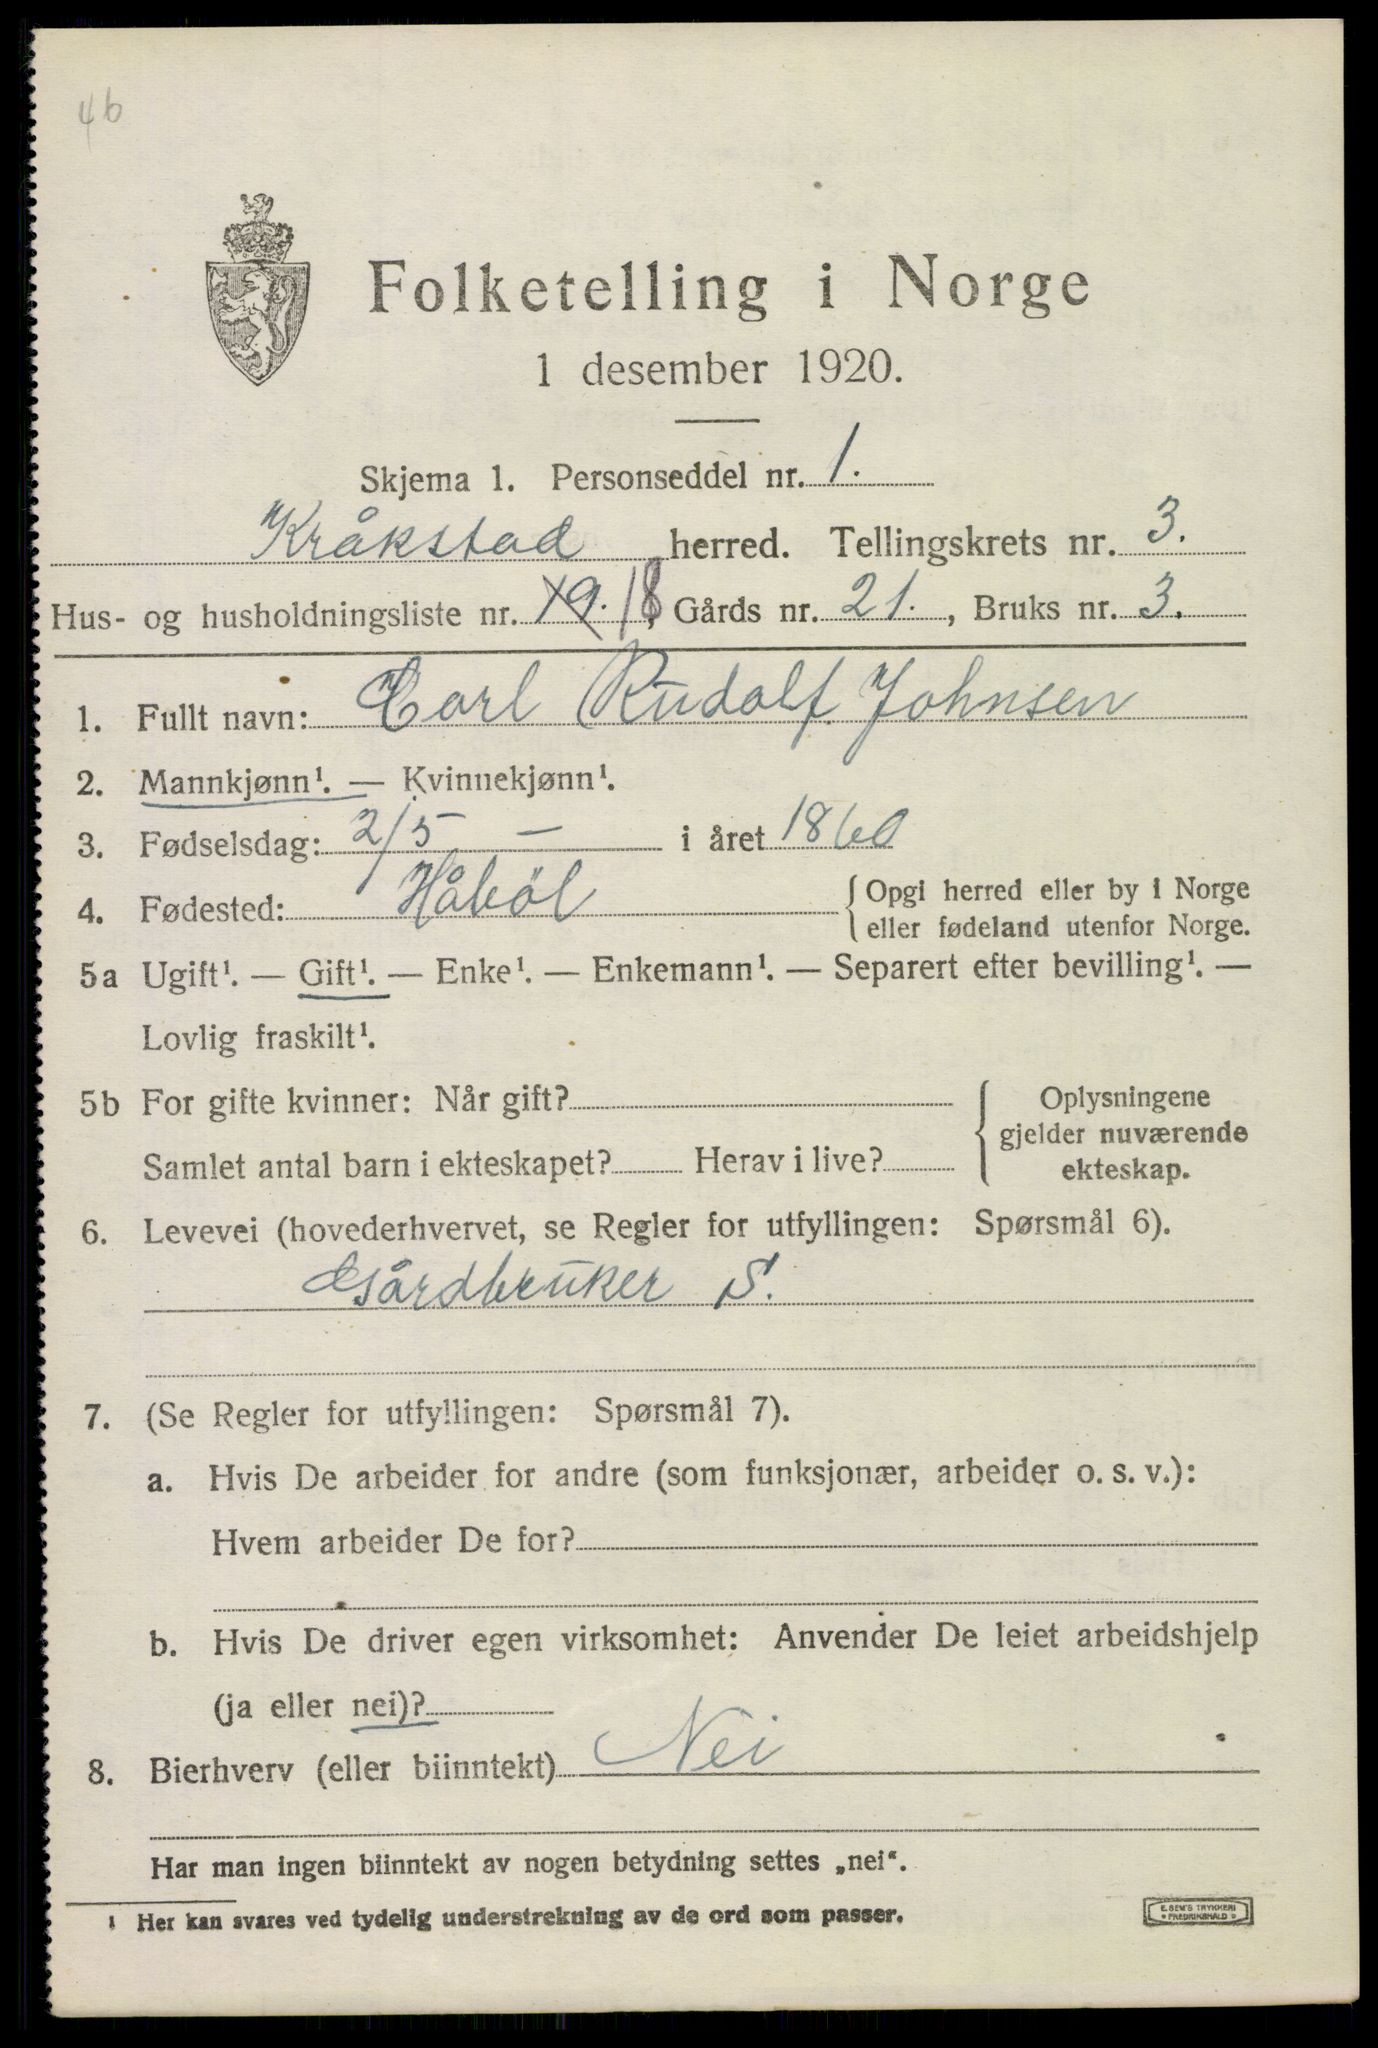 46
Folketelling i Norge
1 desember 1920.
Skjema 1. Personseddel nr. 1.
Kråkstad herred. Tellingskrets nr. 3.
Hus- og husholdningsliste nr. 19. 18, Gårds nr. 21., Bruks nr. 3.
1. Fullt navn: Carl Rudolf Johnsen
2. Mannkjønn¹. — Kvinnekjønn¹.
3. Fødselsdag: 2/5 — i året 1860
4. Fødested: Håböl { Opgi herred eller by i Norge
eller fødeland utenfor Norge.
5a Ugift¹. — Gift¹. — Enke¹. — Enkemann¹. — Separert efter bevilling¹. —
Lovlig fraskilt¹.
5b For gifte kvinner: Når gift? { Oplysningene
gjelder nuværende
Samlet antal barn i ekteskapet? Herav i live? ekteskap.
6. Levevei (hovederhvervet, se Regler for utfyllingen: Spørsmål 6).
Gårdbruker S.
7. (Se Regler for utfyllingen: Spørsmål 7).
a. Hvis De arbeider for andre (som funksjonær, arbeider o. s. v.):
Hvem arbeider De for?
b. Hvis De driver egen virksomhet: Anvender De leiet arbeidshjelp
(ja eller nei)?
8. Bierhverv (eller biinntekt) Nei
Har man ingen biinntekt av nogen betydning settes „nei“.
¹ Her kan svares ved tydelig understrekning av de ord som passer.
E. SEM'S TRYKKERI
• FREDRIKSHALD •